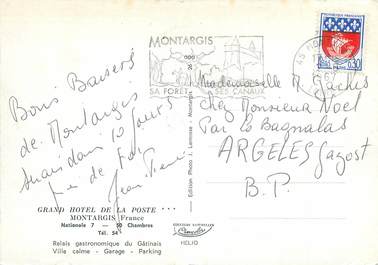 Bons Baisers
de Montargis
dans 10 jours
Jean Pierre
GRAND HOTEL DE LA POSTE ...
MONTARGIS France
Nationale 7 — 50 Chambres
Tél. 54
Relais gastronomique du Gâtinais
Ville calme - Garage - Parking
MONTARGIS
SA FORÊT
SES CANAUX
REPUBLIQUE FRANÇAISE
0,30
Mademoiselle R
chez Monsieur Noel
Par le Bagnalas
ARGELES Gazost
B.P.
Edition Photo J. Lenormée - Montargis
HELIO